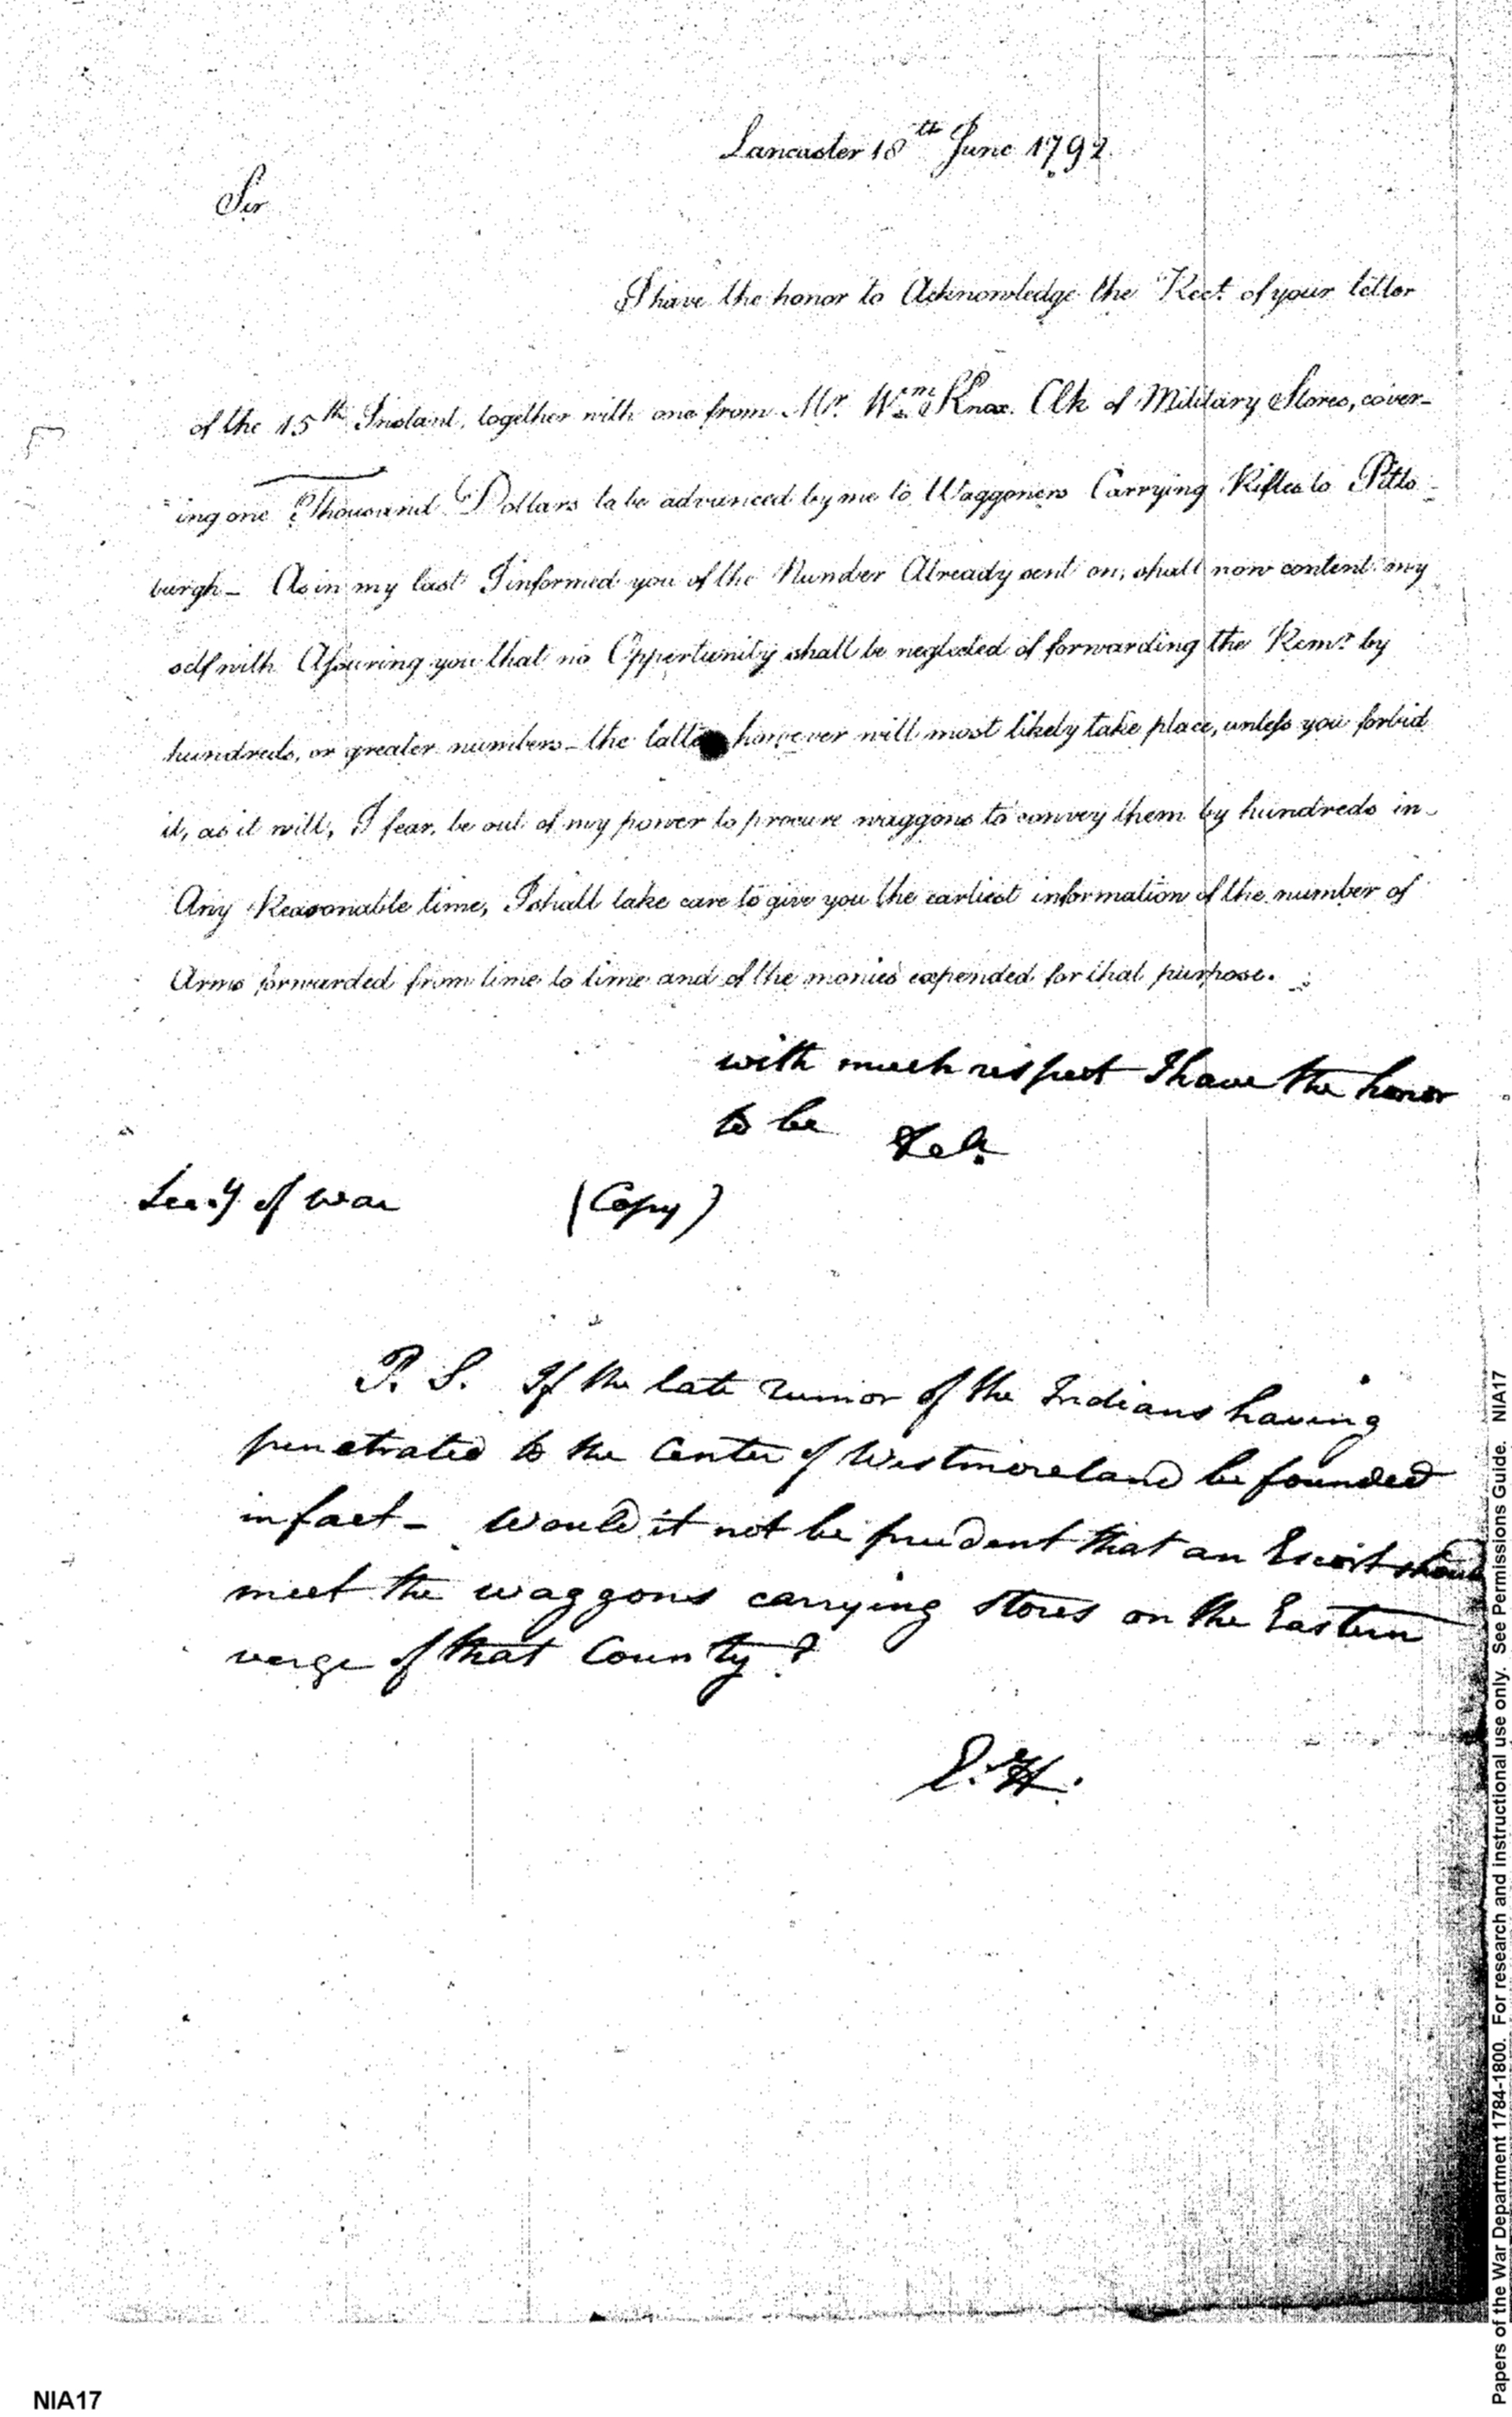 Lancaster 18th June 1792.
Sir
I have the honor to Acknowledge the Rect. of your letter
of the 15th Instant, together with one from Mr. Wm. Knox. Clk of Military Stores, cover-
ing one Thousand Dollars to be advanced by me to Waggoners Carrying Rifles to Pitts-
burgh – As in my last I informed you of the Number Already sent on, shall now content my
self with Assuring you that no Oppertunity shall be neglected of forwarding the Remr. by
hundreds, or greater numbers – the latter however will most likely take place, unless you forbid
it, as it will, I fear, be out of my power to procure waggons to convey them by hundreds in
Any Reasonable time, I shall take care to give you the earliest information of the number of
Arms forwarded from time to time and of the monies expended for that purpose.
with much respect I have the honor
to be &ca.
Secy of War (Copy)
P. S. If the late rumor of the Indians having
penetrated to the Center of Westmoreland be founded
in fact – Would it not be prudent that an Escort should
meet the waggons carrying stores on the Eastern
verge of that County?
E. H.
Papers of the War Department 1784-1800. For research and instructional use only. See Permissions Guide. NIA17
NIA17